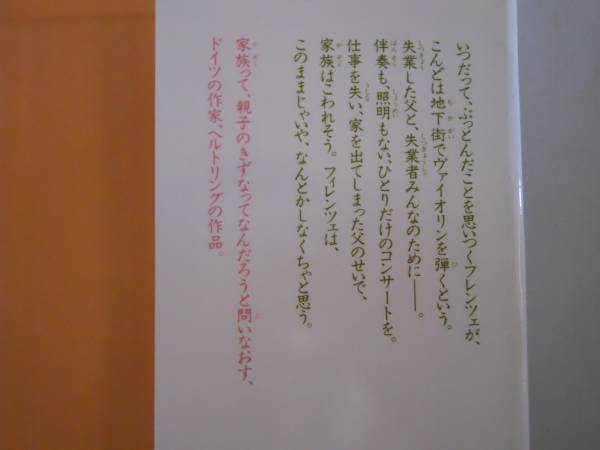 いつだって、ぶっとんだことを思いつくフレンツェが、
こんどは地下街でヴァイオリンを弾くという。
失業した父と、失業者みんなのために――。
伴奏も、照明もない、ひとりだけのコンサートを。
仕事を失い、家を出てしまった父のせいで、
家族はこわれそう。フィレンツェは、
このままじゃいや、なんとかしなくちゃと思う。
家族って、親子のきずなってなんだろうと問いなおす、
ドイツの作家、ヘルトリングの作品。